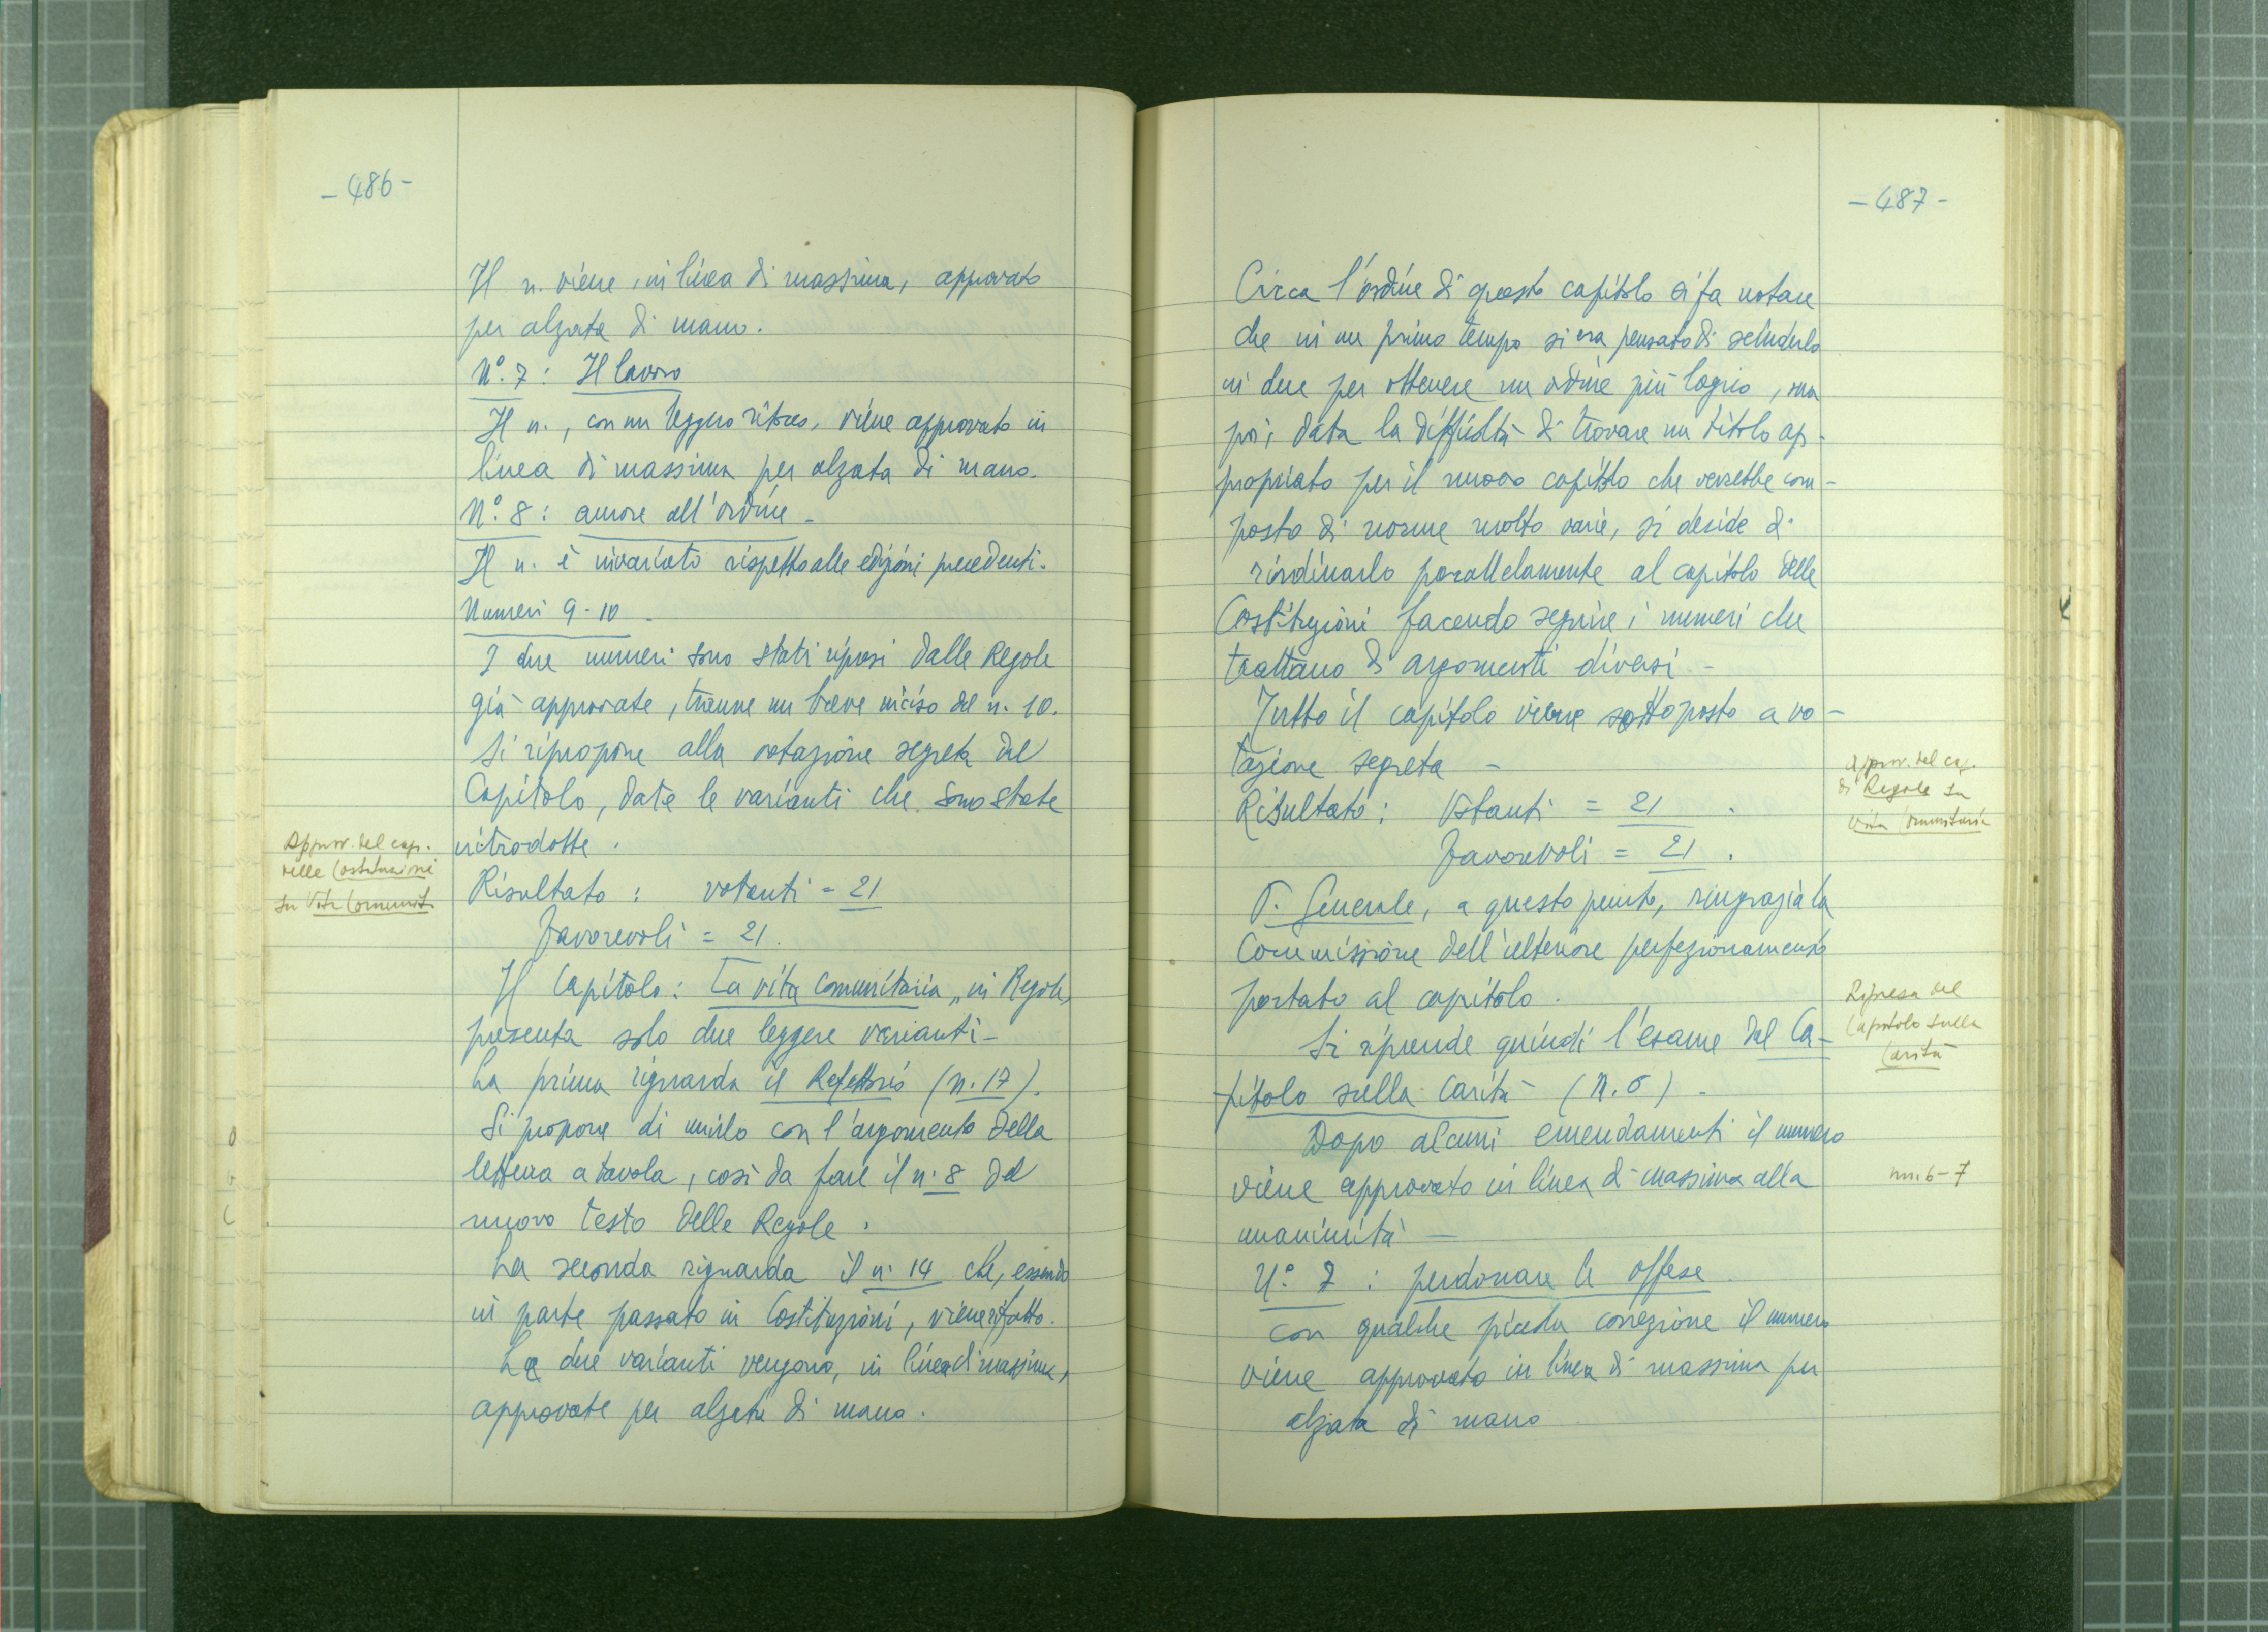 - 486 -
Il n. viene, in linea di massima, approvato
per alzata di mano.
N°. 7: Il lavoro
Il n., con un leggero ritocco, viene approvato in
linea di massima per alzata di mano.
N°. 8: amore all'ordine -
Il n. è invariato rispetto alle edizioni precedenti.
Numeri 9-10 -
I due numeri sono stati ripresi dalle Regole
già approvate, tranne un breve inciso del n. 10.
Si ripropone alla votazione segreta del
Capitolo, date le varianti che sono state
introdotte.
Approv. del cap.
delle Costituzioni
su Vita Comunit.
Risultato: votanti = 21
Favorevoli = 21.
Il Capitolo: La vita comunitaria, in Regole,
presenta solo due leggere varianti -
La prima riguarda il Refettorio (n. 17).
Si propone di unirlo con l'argomento della
lettura a tavola, così da fare il n. 8 del
nuovo testo delle Regole.
La seconda riguarda il n. 14 che, essendo
in parte passato in Costituzioni, viene rifatto.
Le due varianti vengono, in linea di massima,
approvate per alzata di mano.
- 487 -
Circa l'ordine di questo capitolo si fa notare
che in un primo tempo si era pensato di scinderlo
in due per ottenere un ordine più logico, ma
poi, data la difficoltà di trovare un titolo ap-
propriato per il nuovo capitolo che verrebbe com-
posto di norme molto varie, si decide di
riordinarlo parallelamente al capitolo delle
Costituzioni facendo seguire i numeri che
trattano di argomenti diversi -
Tutto il capitolo viene sottoposto a vo-
tazione segreta -
Approv. del cap.
di Regole su
Vita Comunitaria
Risultato: Votanti = 21.
Favorevoli = 21.
P. Generale, a questo punto, ringrazia la
Commissione dell'ulteriore perfezionamento
portato al capitolo.
Ripresa del
Capitolo sulla
Carità
Si riprende quindi l'esame del Ca-
pitolo sulla Carità - (n. 6) -
Dopo alcuni emendamenti il numero
viene approvato in linea di massima alla
nn. 6-7
unanimità -
N°. 7: perdonare le offese
con qualche piccola correzione il numero
viene approvato in linea di massima per
alzata di mano